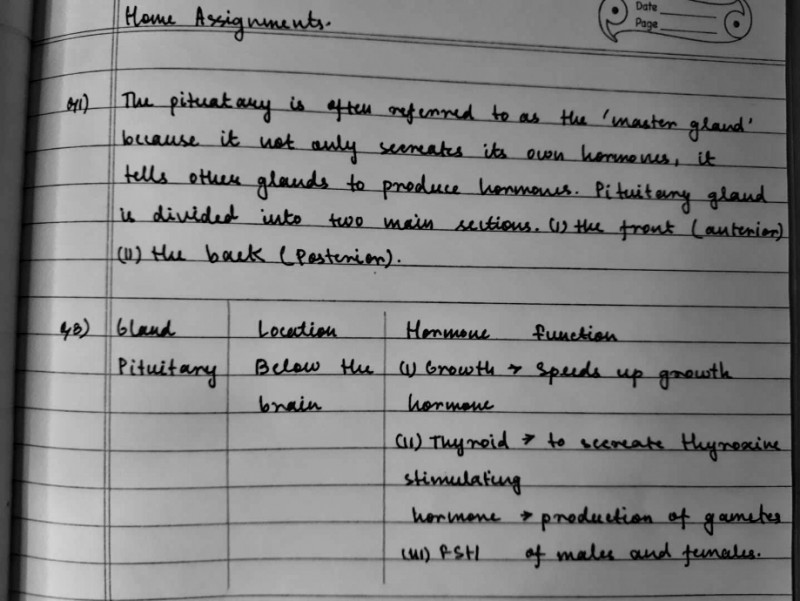 Home Assignments.
Date
Page
The pituatary is often referred to as the 'master gland'
because it not only secreates its own hormones, it
tells other glands to produce hormones. Pituitary gland
is divided into two main sections. (i) the front (anterior)
(ii) the back (Posterior).
Gland Location Hormone function
Pituitary Below the (i) Growth → Speeds up growth
brain hormone
(ii) Thyroid → to secreate thyroxine
stimulating
hormone → production of gametes
(iii) FSH of males and females.